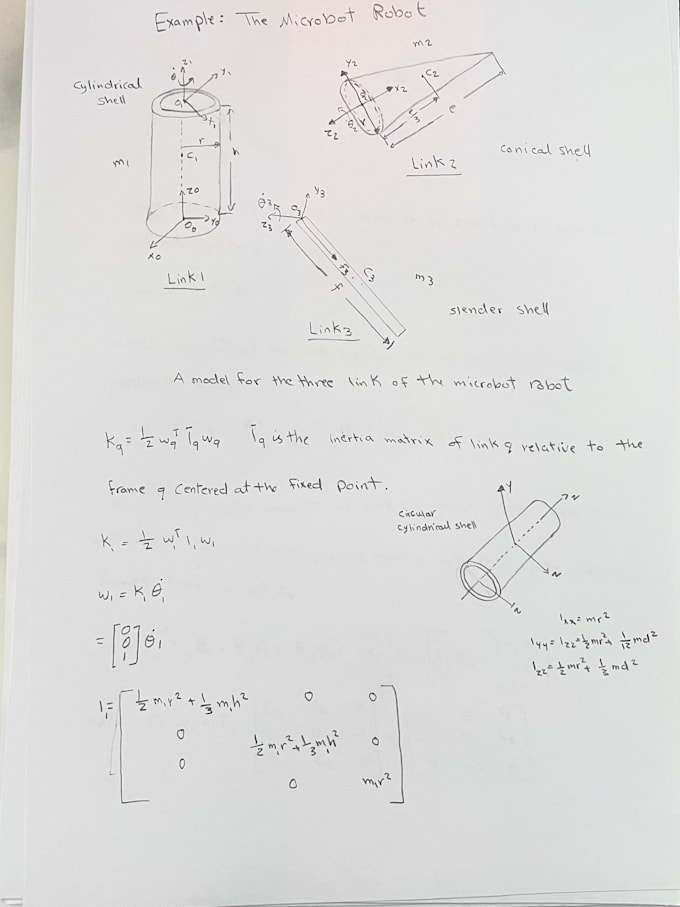 Example: The Microbot Robot
Cylindrical shell
z1
θ̇
y1
O1
x1
r
h
C1
m1
z0
O0
y0
x0
Link 1
m2
y2
C2
x2
z2
r
e/3
e
Link 2
conical shell
y3
θ̇3
O3
z3
C3
f
m3
Link3
slender shell
A model for the three link of the microbot robot
Kq = 1/2 wqᵀ Īq wq Īq is the inertia matrix of link q relative to the
frame q centered at the fixed point.
K1 = 1/2 w1ᵀ I1 w1
w1 = K1 θ̇1
= [0 0 1] θ̇1
circular
cylindrical shell
y
Ixx = mr²
Iyy = Izz = 1/2 mr² + 1/12 md²
Izz = 1/2 mr² + 1/3 md²
I1 = [ 1/2 m1r² + 1/3 m1h² 0 0
0 1/2 m1r² + 1/3 m1h² 0
0 0 m1r² ]